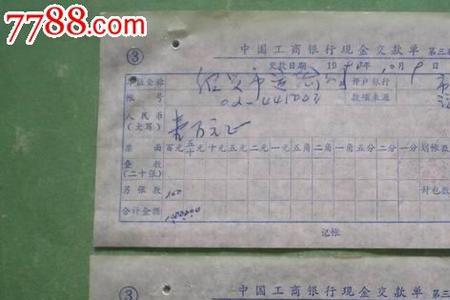 7788.com
③ 中国工商银行现金交款单 第三
交款日期 19 年 10月9日
单位全称 市 开户银行 市
帐号 02-441003 款项来源
人民币
(大写) 壹万元正
票面 百元 五十元 十元 五元 二元 一元 五角 二角 一角 五分 二分 一分 划帐款
叠数
(二十张)
另张数 100 封包款
合计金额
记帐
③ 中国工商银行现金交款单 第三